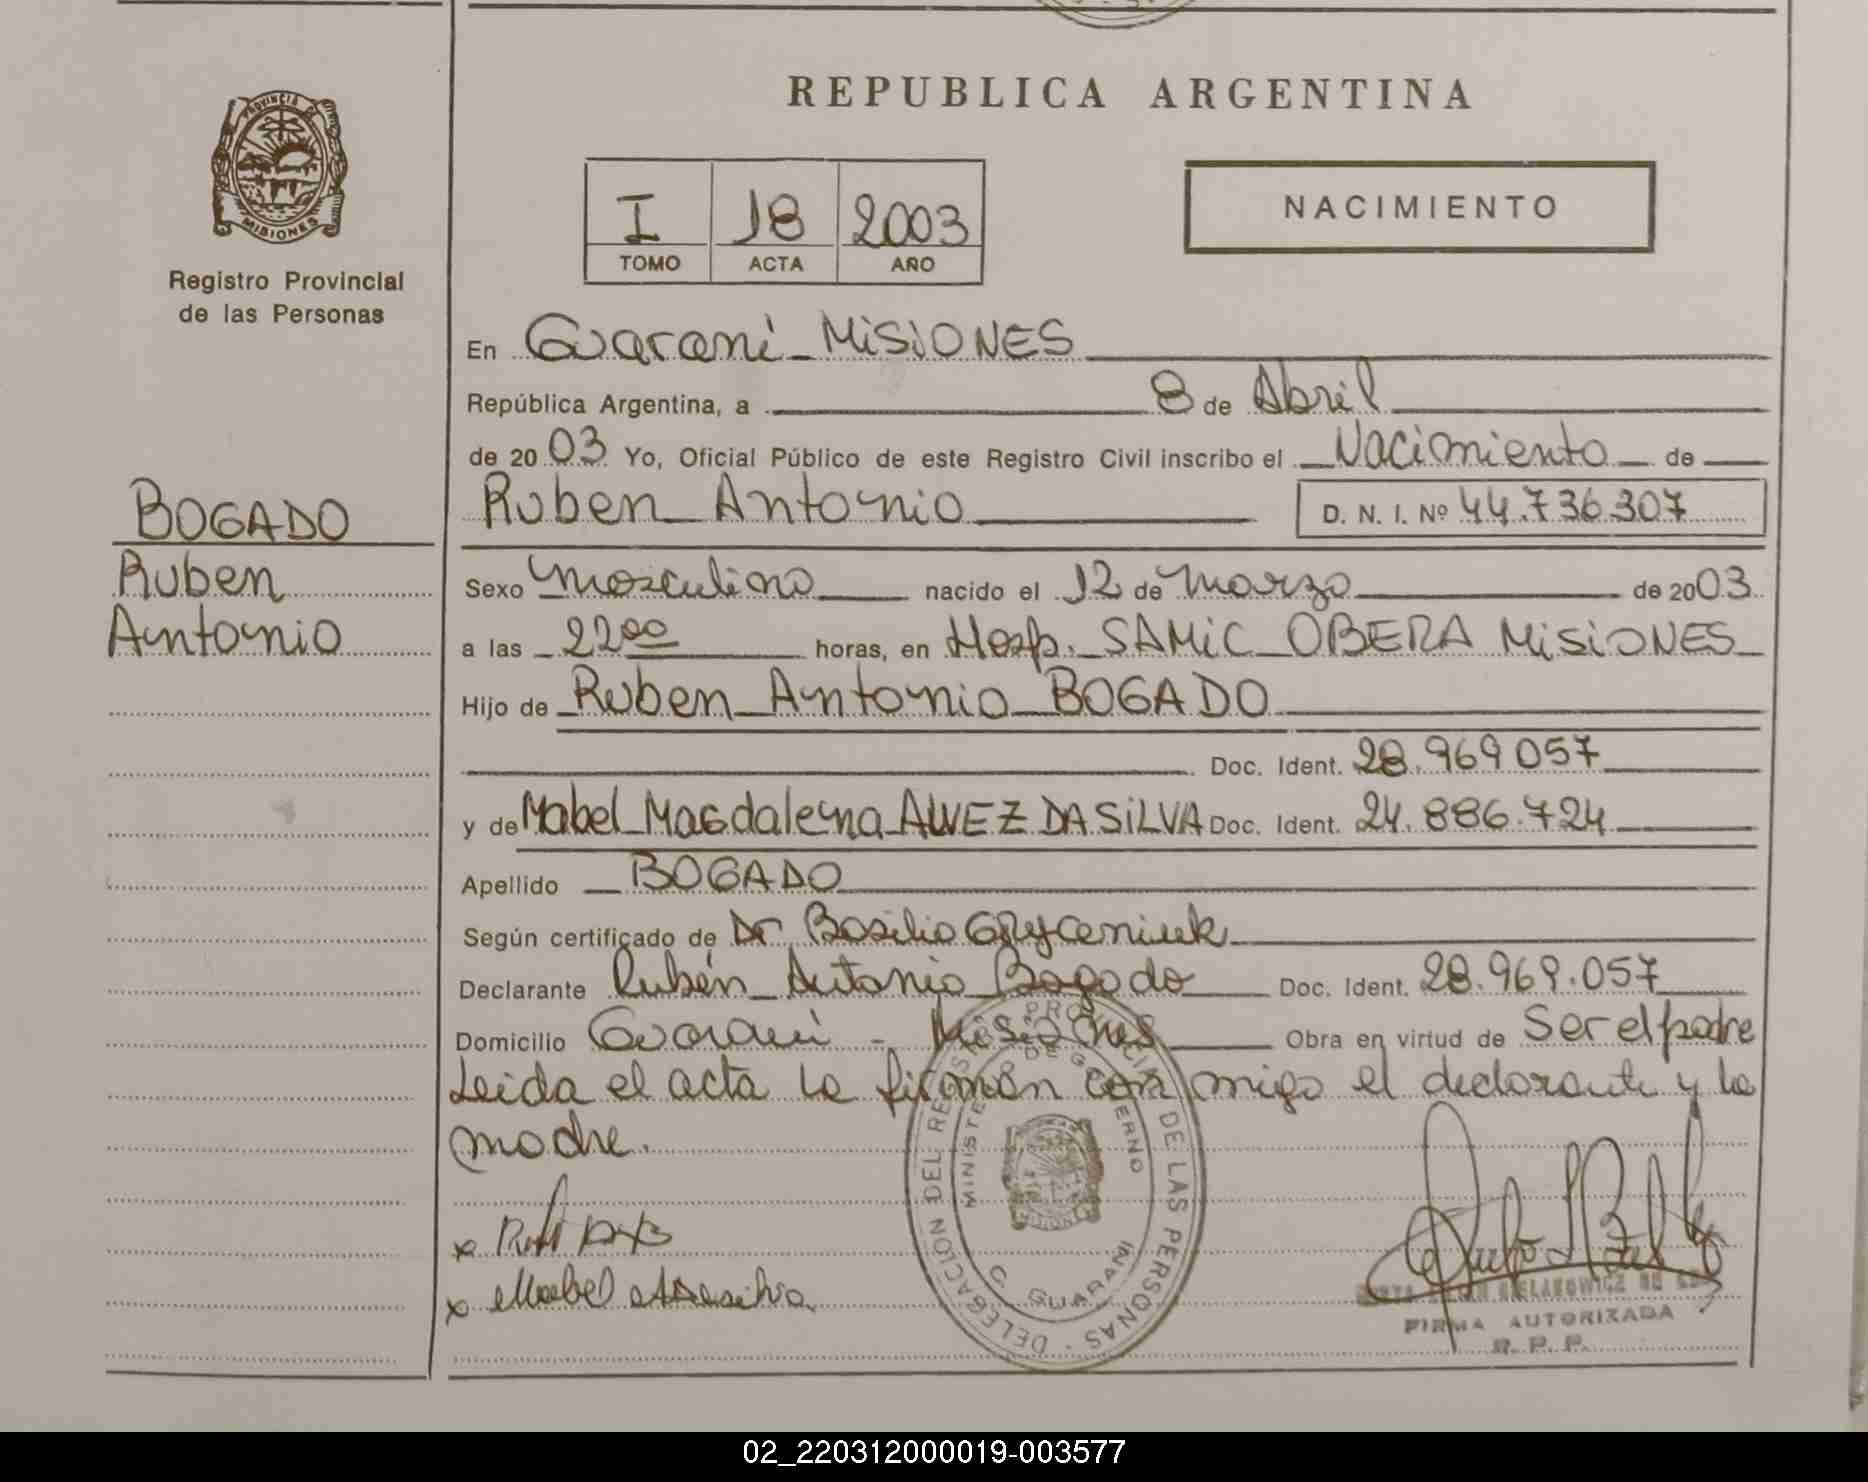 PROVINCIA DE
MISIONES
Registro Provincial
de las Personas
BOGADO
Ruben
Antonio
REPUBLICA ARGENTINA
I 18 2003
TOMO ACTA AÑO
NACIMIENTO
En Guarani - MiSiONES
República Argentina, a 8 de Abril
de 20 03 Yo, Oficial Público de este Registro Civil inscribo el Nacimiento de
Ruben Antonio D. N. I. Nº 44.736.307
Sexo masculino nacido el 12 de marzo de 20 03
a las 22 00 horas, en Hosp. SAMiC OBERA MiSiONES
Hijo de Ruben Antonio BOGADO
Doc. Ident. 28.969 057
y de Mabel Magdalena ALVEZ DA SiLVA Doc. Ident. 24.886.724
Apellido BOGADO
Según certificado de Dr Basilio GRyceniuk
Declarante Rubén Antonio Bogado Doc. Ident. 28.969.057
Domicilio Guarani - Misiones Obra en virtud de Ser el padre
Leida el acta la firman con migo el declarante y la
madre.
DELEGACION DEL REGISTRO PROVINCIAL DE LAS PERSONAS
MINISTERIO DE GOBIERNO
C. GUARANI
MISIONES
x
x Mabel
FIRMA AUTORIZADA
R. P. P.
02_220312000019-003577